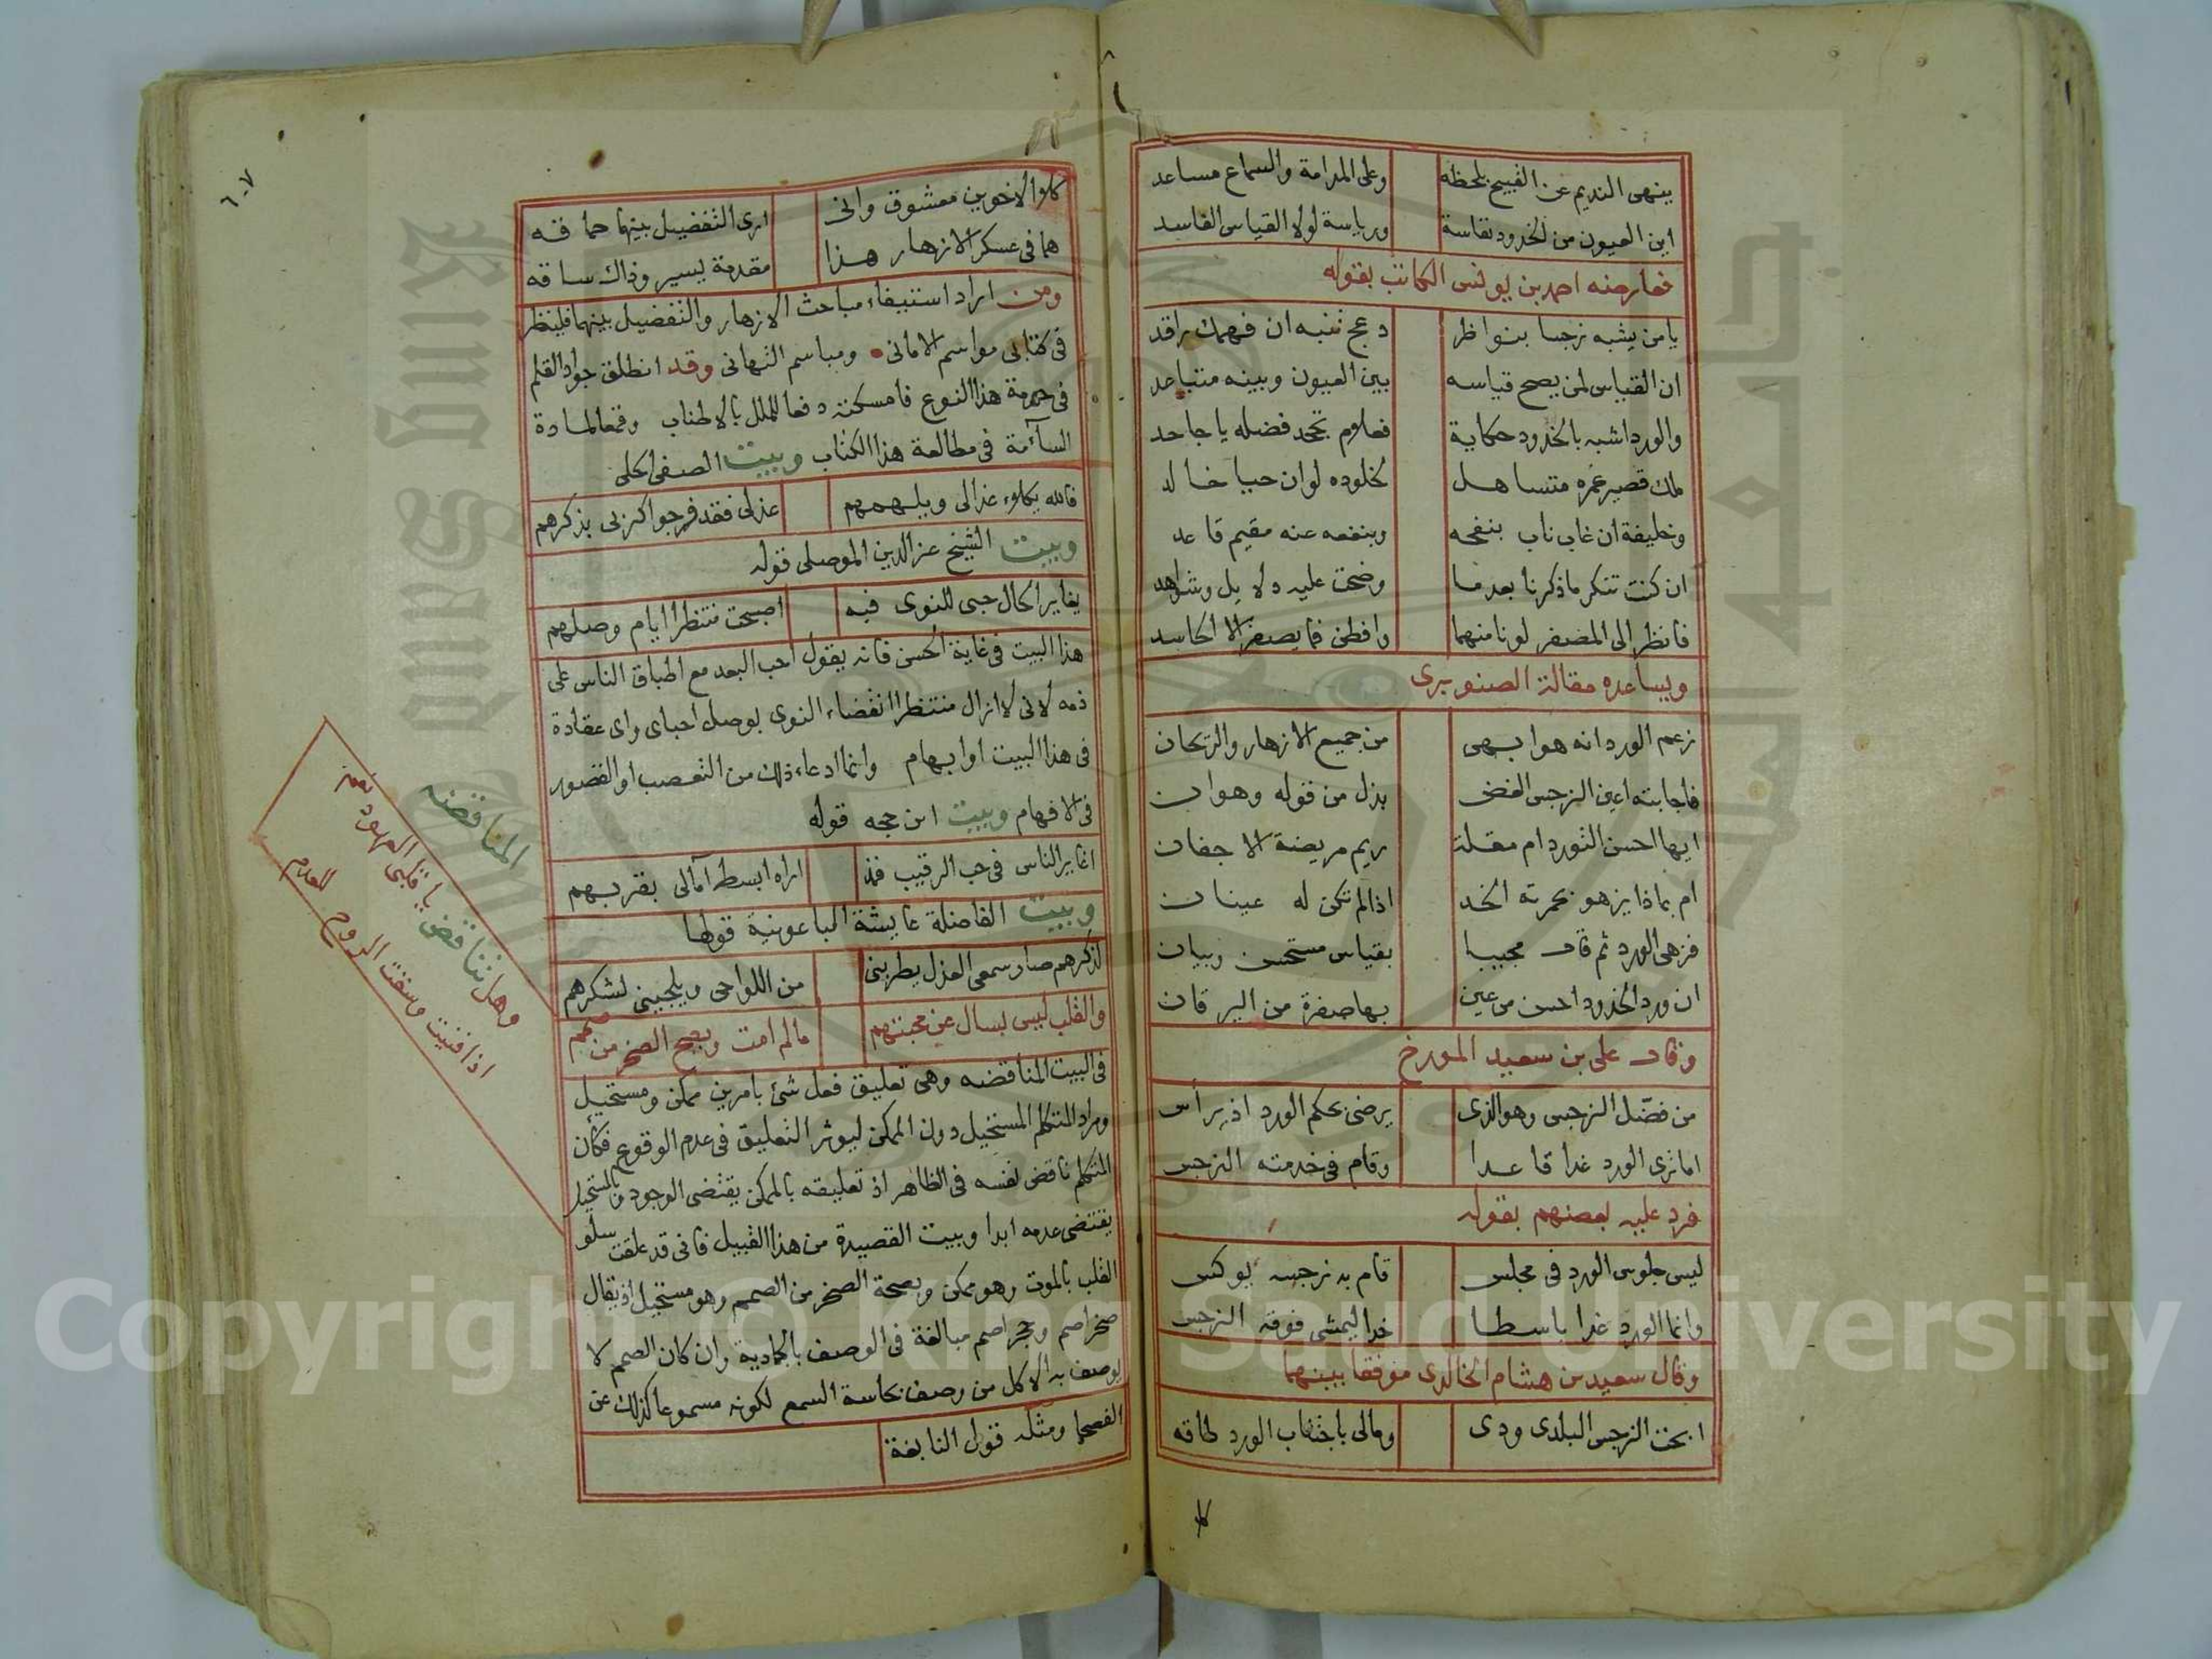 ينهى النديم عن القبيح بلحظه وعلى المدامة والسماع مساعد
اين العيون من الخدود نفاسة ورياسة لولا القياس الفاسد
فعارضه احمد بن يونس الكاتب بقوله
يامن يشبه نرجسا بنواظر دعج تنبه ان فهمك راقد
ان القياس لمن يصح قياسه بين العيون وبينه متباعد
والورد اشبه بالخدود حكاية فعلام تجحد فضله يا جاحد
ملك قصير عمره متساهل لخلوده لوان حيا خالد
وخليفة ان غاب ناب بنفحه وبنفعه عنه مقيم قاعد
ان كنت تنكر ماذكرنا بعدما وضحت عليه دلايل وشواهد
فانظر الى المصفر لونا منهما وافطن فما يصفر الا الحاسد
ويساعده مقالة الصنوبرى
زعم الورد انه هو ابهى من جميع الازهار والريحان
فاجابته اعين النرجس الغض بذل من قوله وهوان
ايها احسن التورد ام مقلة ريم مريضة الاجفان
ام بماذا يزهو بحمرته الخد اذا لم تكن له عينان
فزهى الورد ثم قال مجيبا بقياس مستحسن وبيان
ان ورد الخدود احسن من عين بها صفرة من اليرقان
وقال على بن سعيد المورخ
من فضّل النرجس وهو الذى يرضى بحكم الورد اذ يرأس
اما ترى الورد غدا قاعدا وقام فى خدمته النرجس
فرد عليه بعضهم بقوله
ليس جلوس الورد فى مجلس قام به نرجسه يوكس
وانما الورد غدا باسطا خدا ليمشى فوقه النرجس
وقال سعيد بن هشام الخالدى موفقا بينهما
ابحت النرجس البلدى ودى ومالى باجتناب الورد طاقه
كلا
٦٠٧
كلا الاخوين معشوق وانى ارى التفضيل بينهما حماقه
هما فى عسكر الازهار هذا مقدمة يسير وذاك ساقه
ومن اراد استيفاء مباحث الازهار والتفضيل بينهما فلينظر
فى كتابى مواسم الامانى ومباسم التهانى وقد انطلق جواد القلم
فى حومة هذا النوع فامسكته دفعا للملل بالاطناب وقمعا لمادة
السآمة فى مطالعة هذا الكتاب وبيت الصفى الحلى
فالله يكلوء عذالى ويلهمهم عذلى فقد فرجوا كربى بذكرهم
وبيت الشيخ عز الدين الموصلى قوله
يغاير الحال حبى للنوى فيه اصبحت منتظرا ايام وصلهم
هذا البيت فى غاية الحسن فانه يقول احب البعد مع اطباق الناس على
ذمه لانى لا ازال منتظرا انقضاء النوى بوصل احباى واى عقادة
فى هذا البيت او ابهام وانما ادعاء ذلك من التعصب او القصور
فى الافهام وبيت ابن حجه قوله
اغاير الناس فى حب الرقيب فمذ اراه ابسط آمالى بقربهم
وبيت الفاضلة عايشة الباعونية قولها
لذكرهم صار سمعى العذل يطربنى من اللواحى ويلجينى لشكرهم
والقلب ليس بسال عن محبتهم مالم امت ويصح الصخر من صمم
فى البيت المناقضه وهى تعليق فعل شئ بامرين ممكن ومستحيل
ومراد المتكلم المستحيل دون الممكن ليوثر التعليق فى عدم الوقوع فكأن
المتكلم ناقض نفسه فى الظاهر اذ تعليقه بالممكن يقتضى الوجود وبالمستحيل
يقتضى عدمه ابدا وبيت القصيدة من هذا القبيل فانى قد علقت سلو
القلب بالموت وهو ممكن وبصحة الصخر من الصمم وهو مستحيل اذ يقال
صخر اصم وحجر اصم مبالغة فى الوصف بالجمادية وان كان الصمم لا
يوصف به الا كل من وصف بحاسة السمع لكونه مسموعا كذلك عن
الفصحا ومثله قول النابغة
المناقضه
وهل تناقض يا قلبى العهود نعم
اذا فنيت وسفت الروح للعدم
Copyright © King Saud University